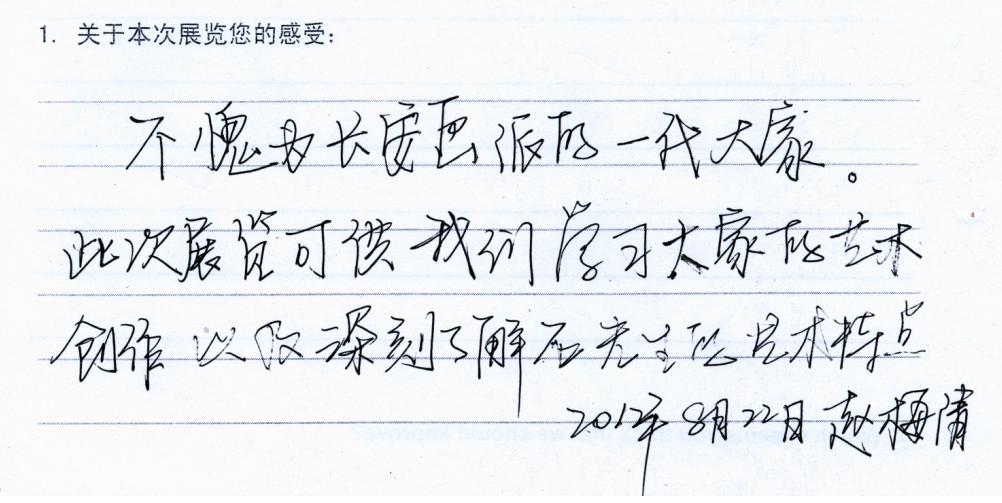 1. 关于本次展览您的感受:
不愧为长安画派的一代大家。
此次展览可供我们学习大家的艺术
创作以及深刻了解石先生的艺术特点
2012年8月22日 赵梅倩